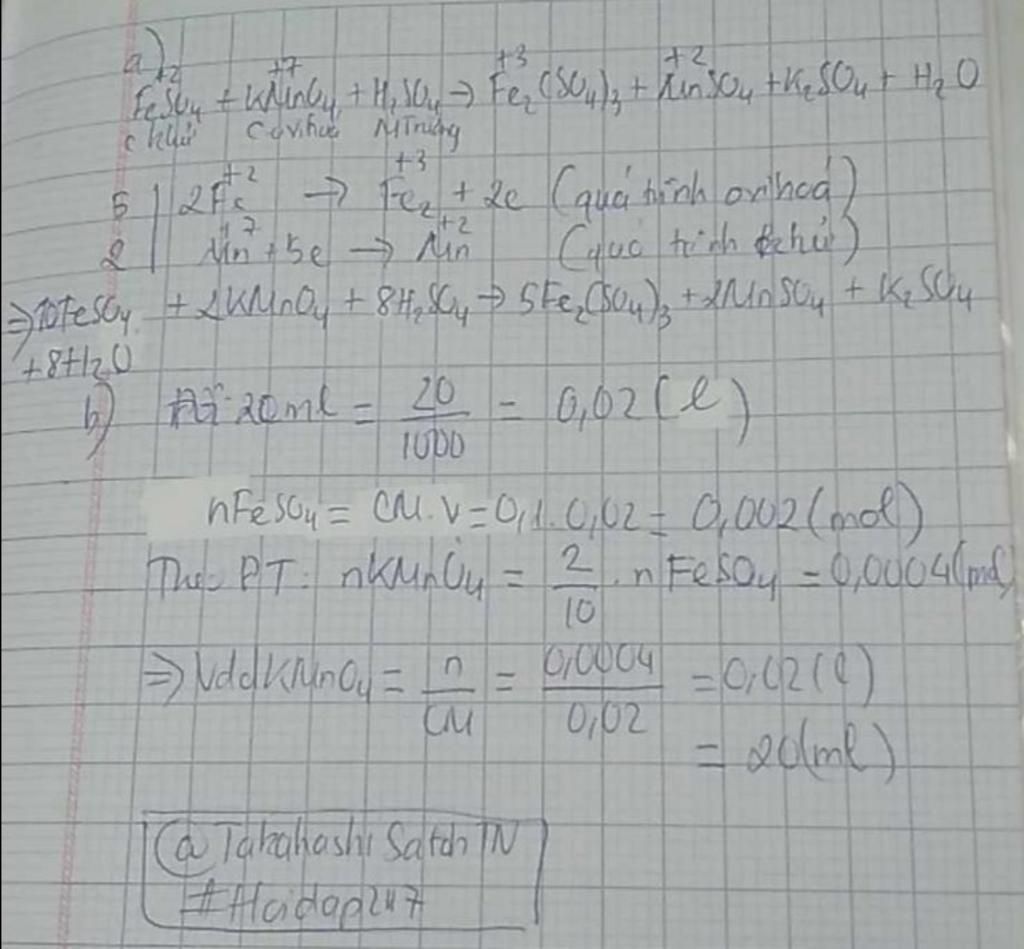 a)
+2 +7 +3 +2
FeSO4 + KMnO4 + H2SO4 → Fe2(SO4)3 + MnSO4 + K2SO4 + H2O
c khử c oxihoá MTrường
5 | 2Fe+2 → Fe2+3 + 2e (quá trình oxihoá)
2 | Mn+7 + 5e → Mn+2 (quá trình khử)
⇒ 10FeSO4 + 2KMnO4 + 8H2SO4 → 5Fe2(SO4)3 + 2MnSO4 + K2SO4
+ 8H2O
b) 20ml = 20/1000 = 0,02 (l)
nFeSO4 = CM.V = 0,1.0,02 = 0,002 (mol)
Theo PT: nKMnO4 = 2/10 . nFeSO4 = 0,0004 (mol)
⇒ VddKMnO4 = n/CM = 0,0004/0,02 = 0,02 (l)
= 20 (ml)
@Takahashi Satoh TN
#Hoidap247